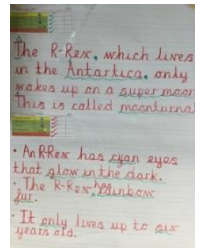 The R-Rex, which lives
in the Antartica, only
wakes up on a super moon
This is called moonturnal
• An R-Rex has cyan eyes
that glow in the dark.
• The R-Rex has rainbow
fur.
• It only lives up to six
years old.